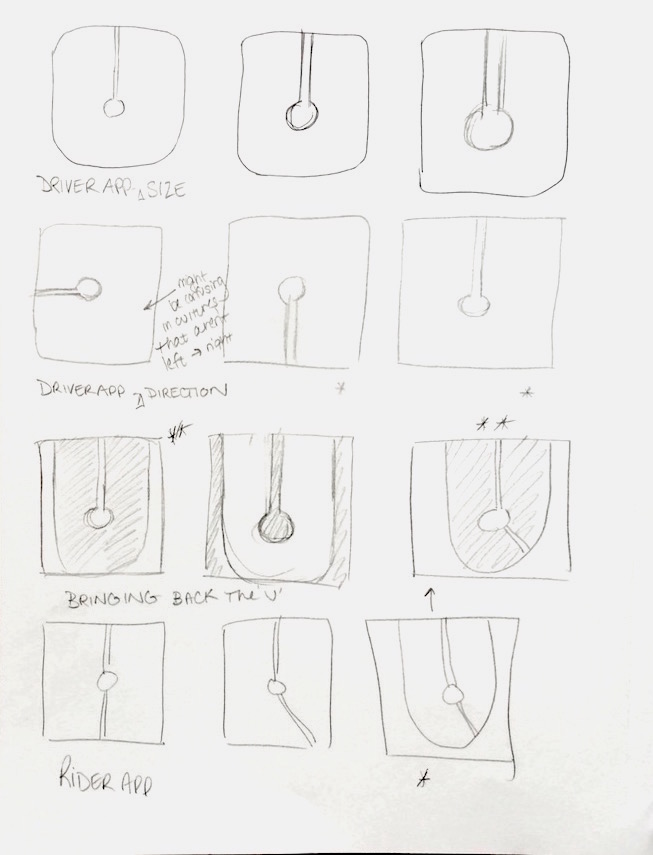 DRIVER APP - △ SIZE
might
be confusing
in cultures
that aren't
left → right
DRIVER APP △ DIRECTION
*
*
**
**
BRINGING BACK The 'U'
RIDER APP
*